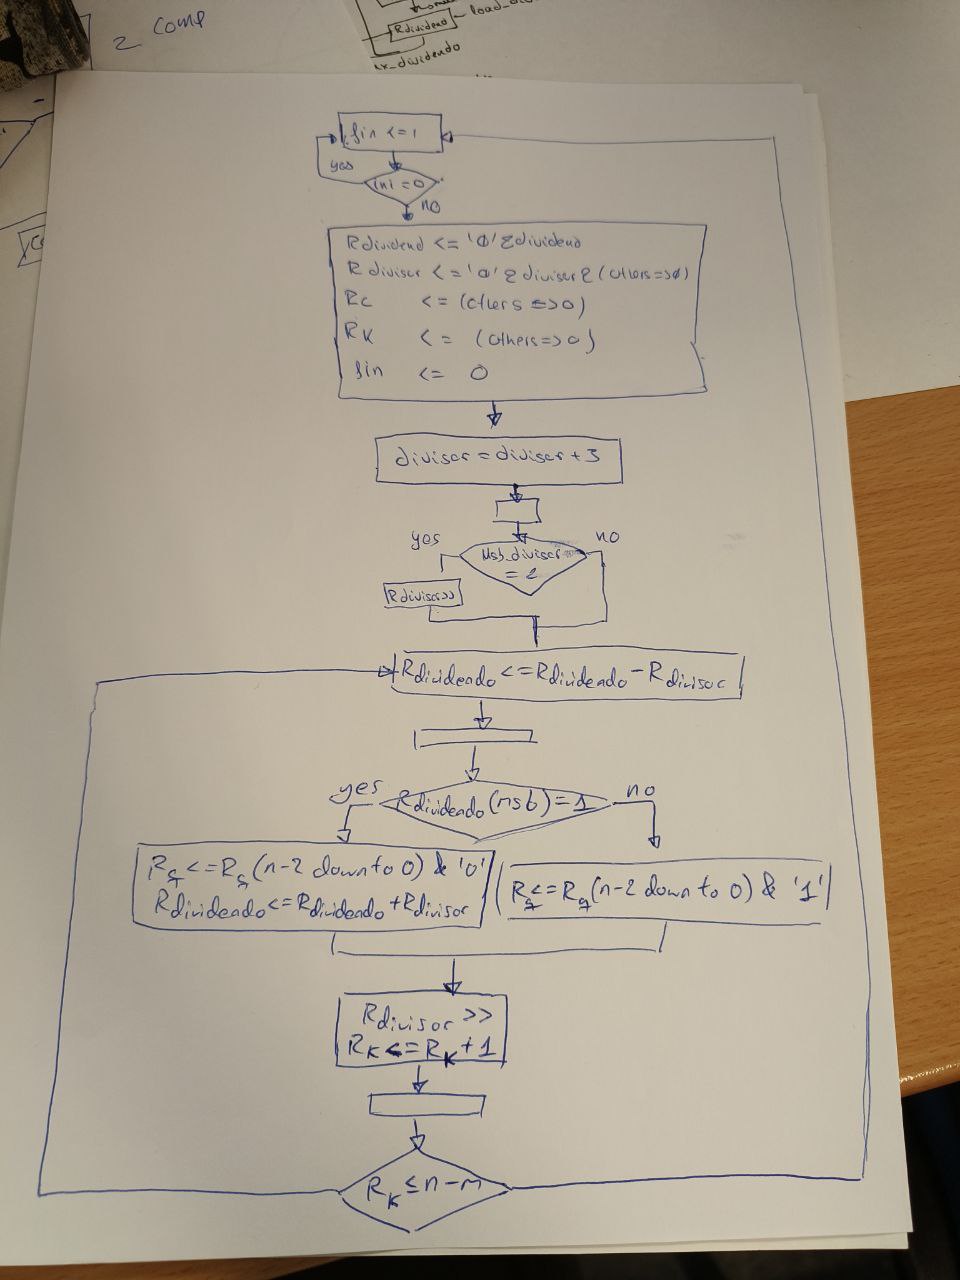 2 comp
Rdividend
fin <= 1
yes
ini = 0
no
Rdividend <= '0' & dividend
R diviser <= '0' & diviser & (others=>0)
Rc <= (others => 0)
RK <= (others=>0)
fin <= 0
diviser = diviser + 3
yes
no
Msb_diviser
= 1
Rdiviser>>
Rdividendo <= Rdividendo - Rdivisor
yes
Rdividendo (msb) = 1
no
Rq <= Rq (n-2 down to 0) & '0'
Rdividendo <= Rdividendo + Rdivisor
Rq <= Rq (n-2 down to 0) & '1'
Rdivisor >>
RK <= RK + 1
RK ≤ n-m